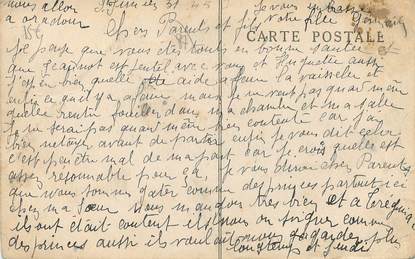 nous allon
a oradour
St Junien 31
je vous embrasse
votre fille
Chers Parents et
CARTE POSTALE
Je pense que vous êtes tous en bonne santée et
que est gentil avec vous et Huguette aussi
c'est bien quelle aide a faire la vaisselle et
enfin quil y a faire mais je ne veut pas quand même
quelle rentre fouiller dans ma chambre et ma salle
je ne serai pas quand même très contente car j'ai
bien netoyer avant de partir enfin je vous dit cela
c'est peu etre mal de ma part car je crois quelle est
assez resonnable pour ça. je vous dirai chers Parents
que nous somme gater comme des princes partout ici
chez ma Sœur nous mangeon tres bien et a
ils ont était content ils nous on soigner comme
des princes aussi ils voulait nous garder plus
longtemps et jeudi